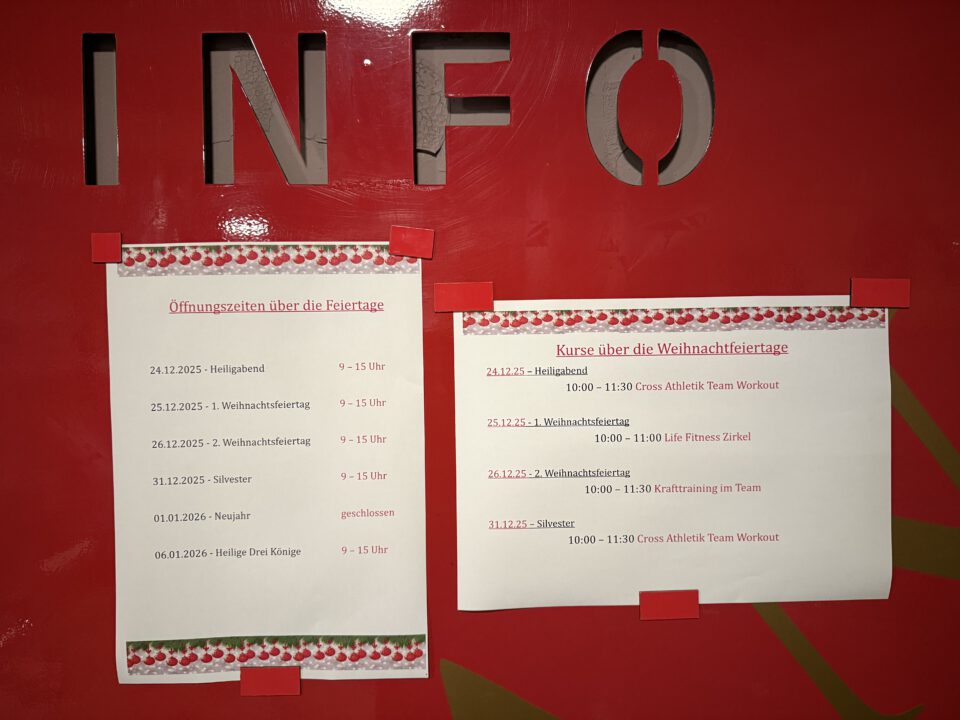 INFO
Öffnungszeiten über die Feiertage
24.12.2025 - Heiligabend 9 – 15 Uhr
25.12.2025 - 1. Weihnachtsfeiertag 9 – 15 Uhr
26.12.2025 - 2. Weihnachtsfeiertag 9 – 15 Uhr
31.12.2025 - Silvester 9 – 15 Uhr
01.01.2026 - Neujahr geschlossen
06.01.2026 - Heilige Drei Könige 9 – 15 Uhr
Kurse über die Weihnachtfeiertage
24.12.25 – Heiligabend
10:00 – 11:30 Cross Athletik Team Workout
25.12.25 - 1. Weihnachtsfeiertag
10:00 – 11:00 Life Fitness Zirkel
26.12.25 - 2. Weihnachtsfeiertag
10:00 – 11:30 Krafttraining im Team
31.12.25 – Silvester
10:00 – 11:30 Cross Athletik Team Workout